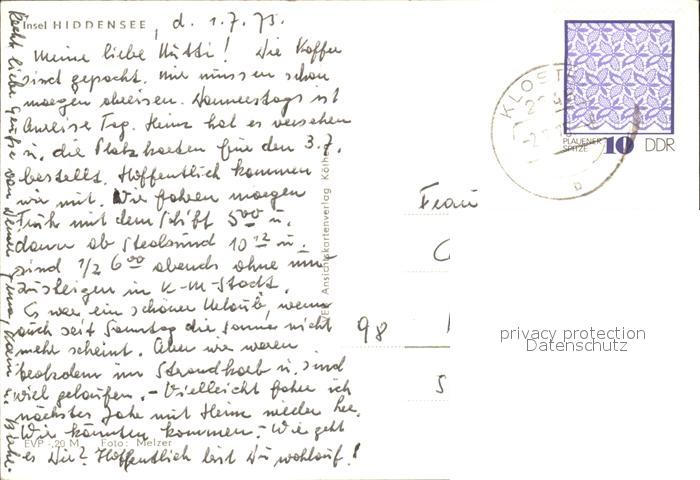 Insel HIDDENSEE, d. 1.7.75.
Meine liebe Mutti! Die Koffer
sind gepackt. Wir müssen schon
morgen abreisen. Donnerstags ist
Anreise Tag. Heinz hat es versehen
u. die Platzkarten für den 3.7.
bestellt. Hoffentlich kommen
wir mit. Wir fahren morgen
Früh mit dem Schiff 5 00 u.
dann ab Stralsund 10 12 u.
sind 1/2 6 00 abends ohne um-
zusteigen in K-M-Stadt.
Es war ein schöner Urlaub, wenn
auch seit Sonntag die Sonne nicht
mehr scheint. Aber wir waren
trotzdem im Strandkorb u. sind
viel gelaufen. - Vielleicht fahre ich
nächstes Jahr mit Heinz wieder her.
Wir könnten kommen. - Wie geht
es Dir? Hoffentlich bist Du wohlauf!
Recht liebe Grüße von Deiner
EVP -,20 M Foto: Melzer
VEB Ansichtskartenverlag Köthen
KLOSTE
b
PLAUENER
SPITZE 10 DDR
Frau
98
privacy protection
Datenschutz